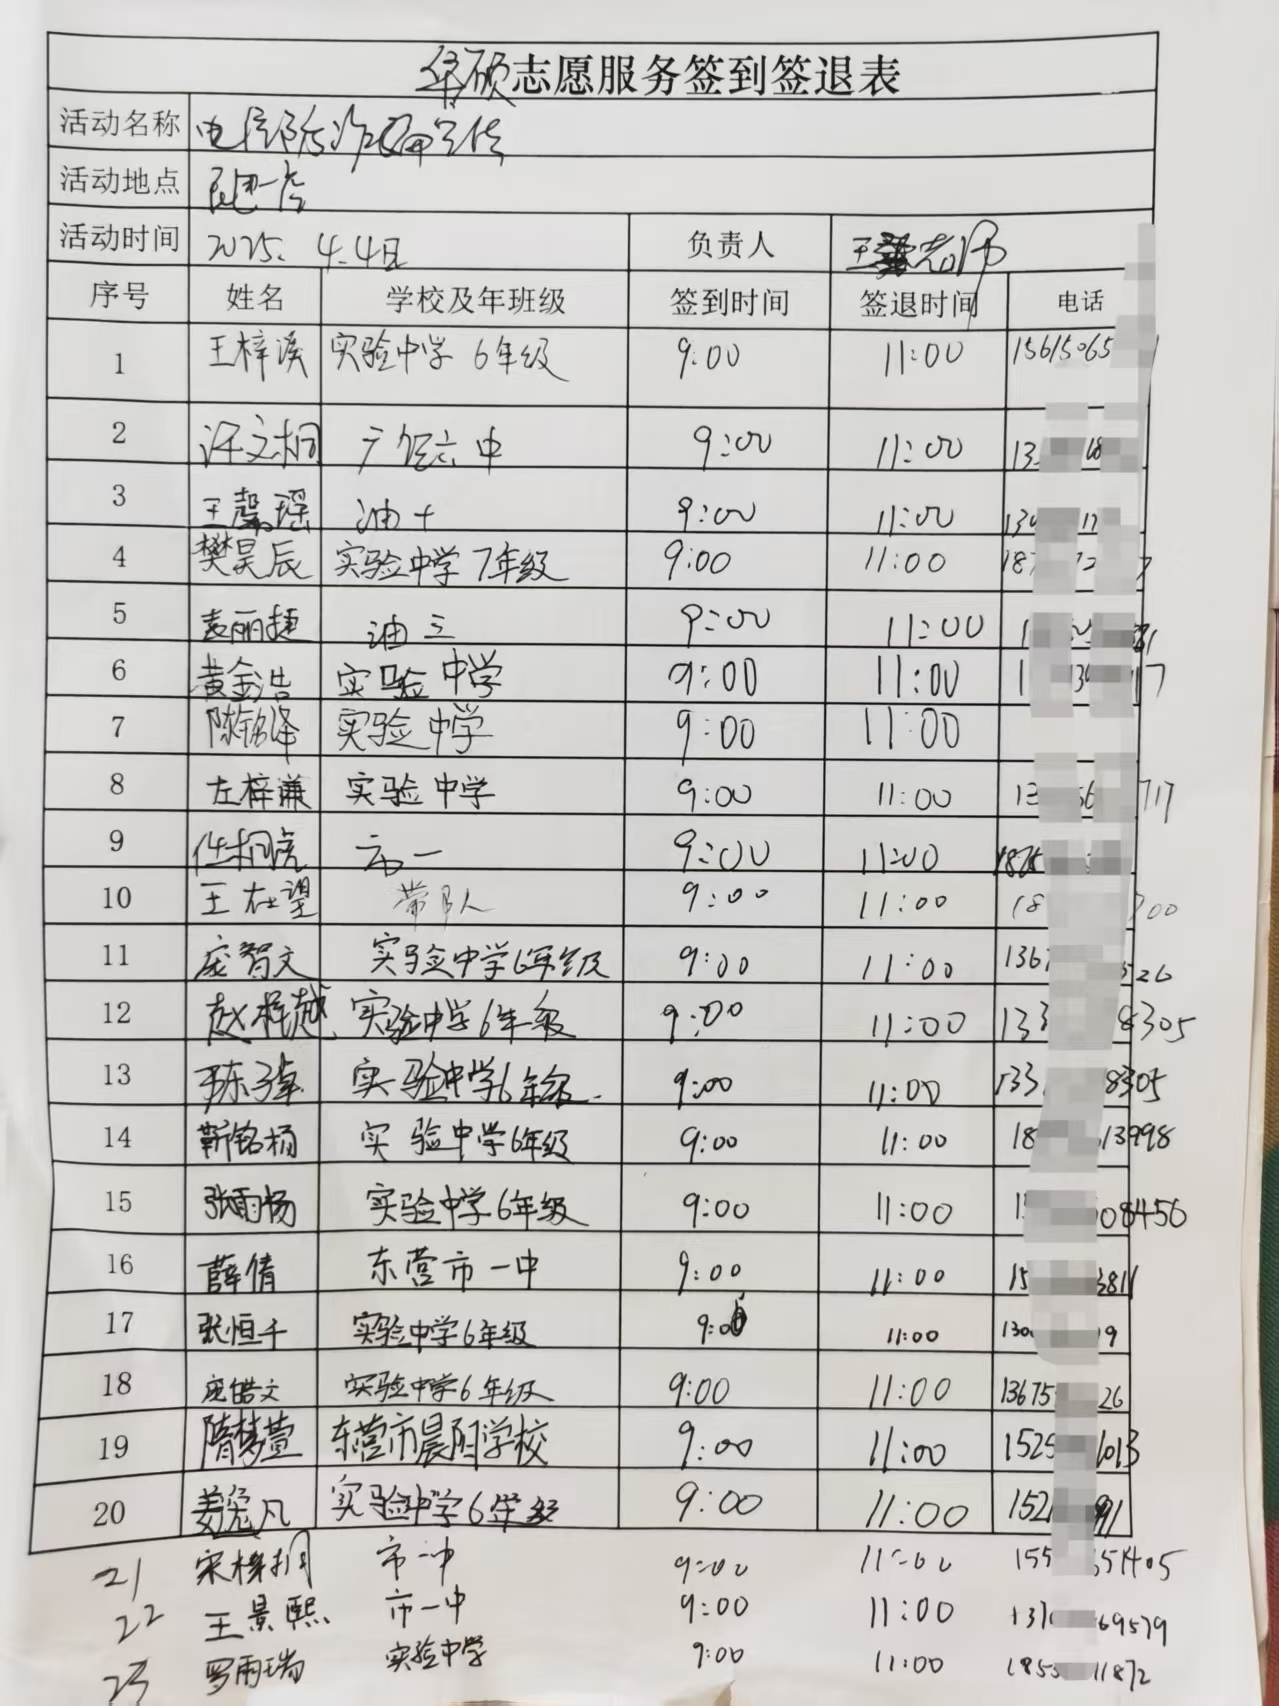 华硕志愿服务签到签退表
活动名称 电信防诈骗宣传
活动地点
活动时间 2025.4.4日 负责人 王 老师
序号 姓名 学校及年班级 签到时间 签退时间 电话
1 王梓溪 实验中学 6年级 9:00 11:00 15615065
2 许文桐 广饶六中 9:00 11:00 13 18
3 王馨瑶 油十 9:00 11:00 17
4 樊昊辰 实验中学 7年级 9:00 11:00 187 2
5 袁丽捷 油三 9:00 11:00 1
6 黄金浩 实验中学 9:00 11:00 1 39 17
7 陈铭泽 实验中学 9:00 11:00
8 左梓谦 实验中学 9:00 11:00 13 56 717
9 任桐虎 9:00 11:00 1875
10 王在望 带队 9:00 11:00 18 00
11 庞智文 实验中学6年级 9:00 11:00 136 526
12 赵梓越 实验中学6年级 9:00 11:00 133 8305
13 实验中学6年级. 9:00 11:00 133 8305
14 靳铭杨 实验中学6年级 9:00 11:00 18 13998
15 张雨杨 实验中学6年级 9:00 11:00 1 08456
16 薛倩 东营市一中 9:00 11:00 15 3811
17 张恒千 实验中学6年级 9:00 11:00 130 9
18 庞皓文 实验中学6年级 9:00 11:00 13675 26
19 隋梦萱 东营市晨阳学校 9:00 11:00 1525 1013
20 姜宛凡 实验中学6年级 9:00 11:00 152 91
21 宋梓桐 市一中 9:00 11:00 155 51405
22 王景熙 市一中 9:00 11:00 137 69579
23 罗雨瑞 实验中学 9:00 11:00 185 11872